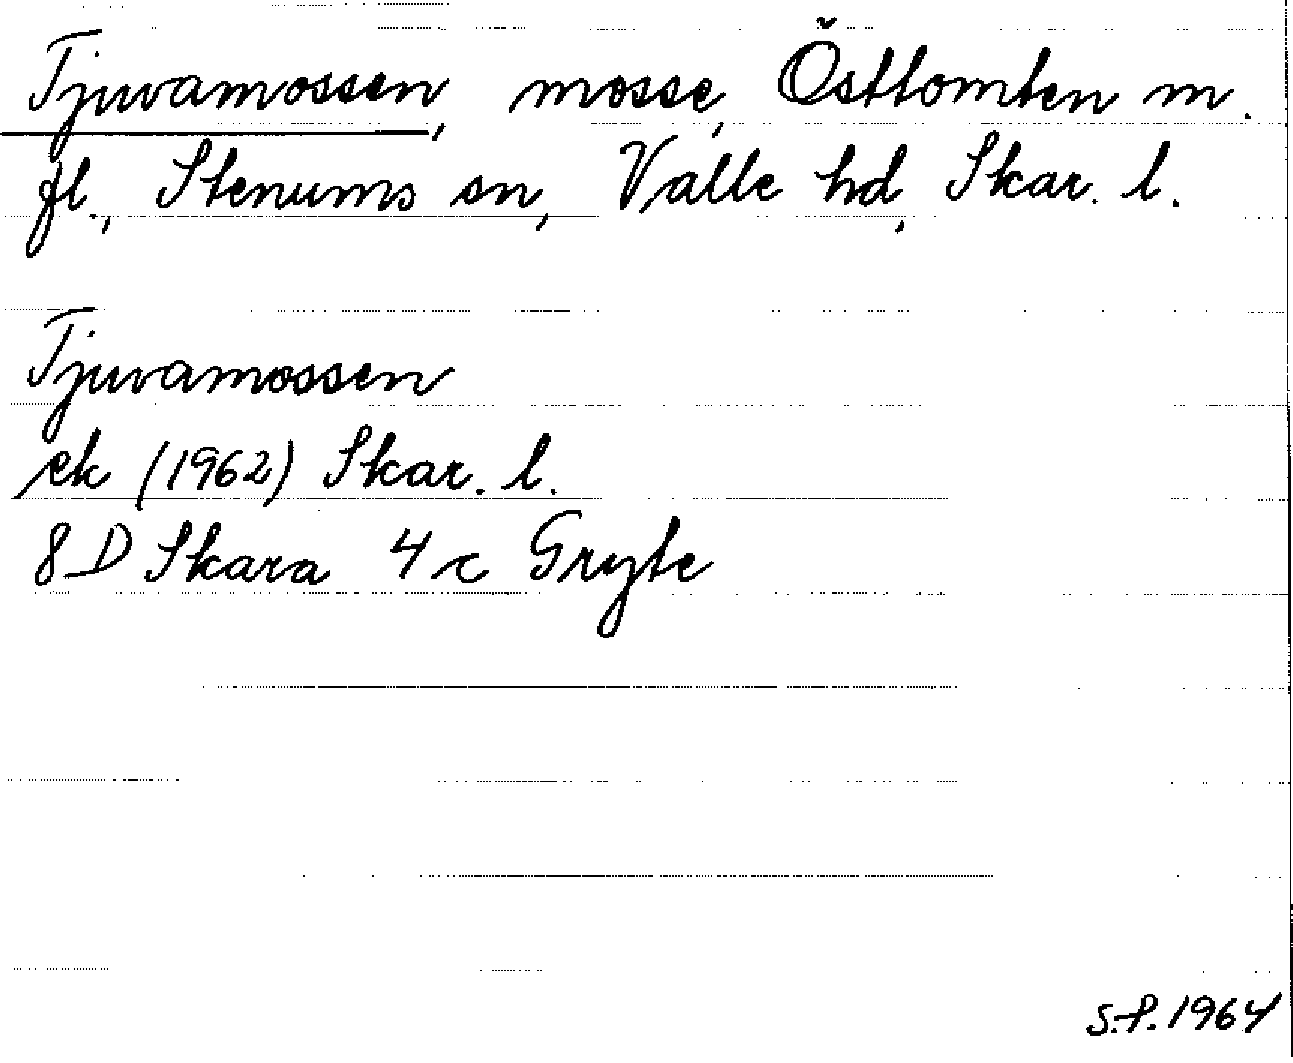 Tjuvamossen, mosse, Östtomten m.
fl., Stenums sn, Valle hd, Skar. l.
Tjuvamossen
ek (1962) Skar. l.
8 D Skara 4 c Gryte
S.P. 1964